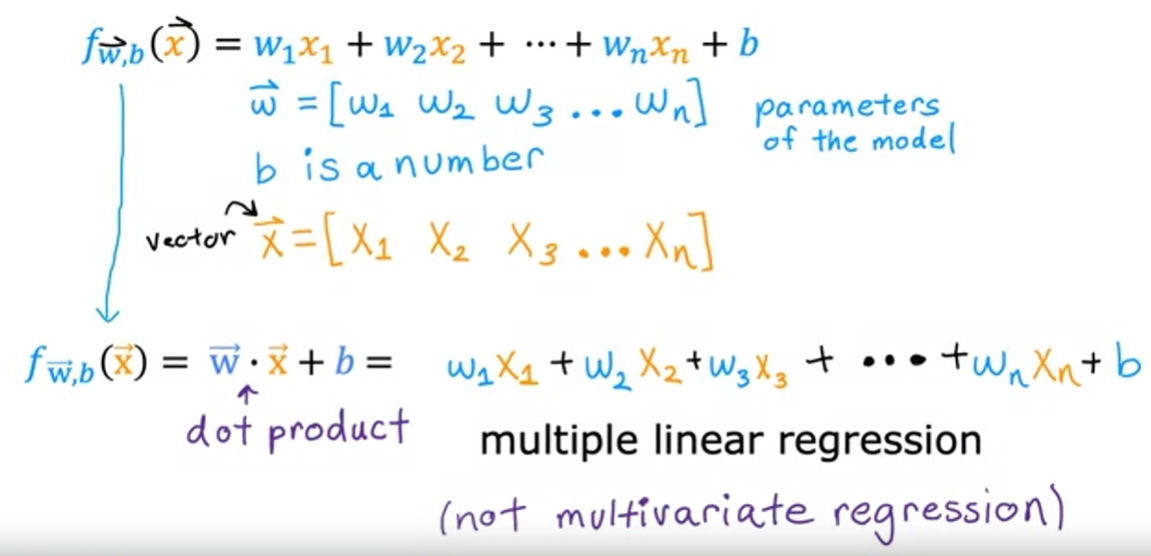 f_w⃗,b(x⃗) = w₁x₁ + w₂x₂ + ⋯ + wₙxₙ + b
w⃗ = [w₁ w₂ w₃ ... wₙ] parameters of the model
b is a number
vector x⃗ = [x₁ x₂ x₃ ... xₙ]
f_w⃗,b(x⃗) = w⃗ · x⃗ + b = w₁x₁ + w₂x₂ + w₃x₃ + ⋯ + wₙxₙ + b
dot product
multiple linear regression
(not multivariate regression)